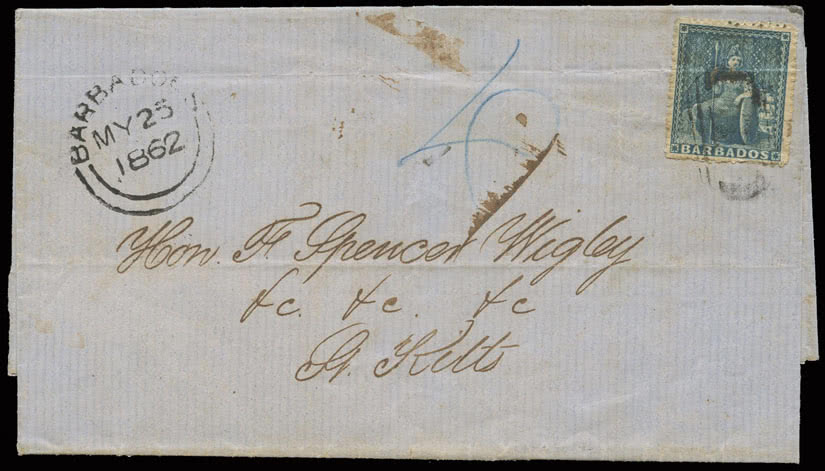 BARBADOS
MY 25
1862
4
BARBADOS
Hon. F. Spencer Wigley
&c. &c. &c
St. Kitts